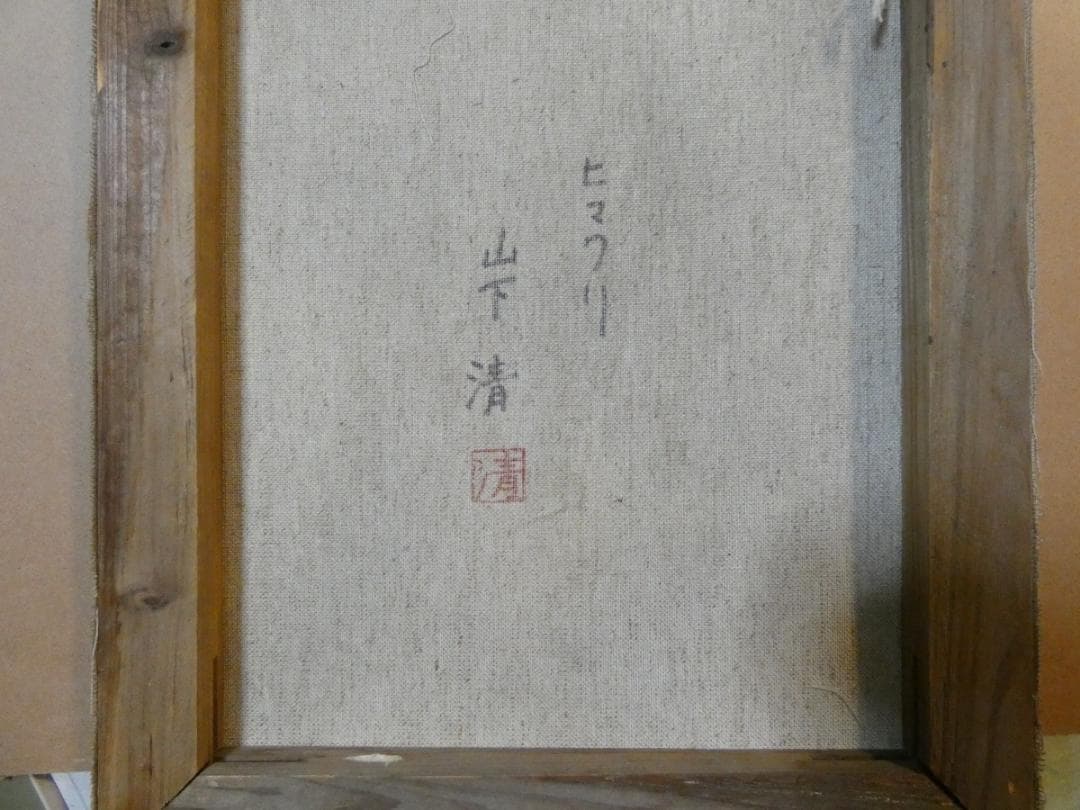 ヒマワリ
山下清
清